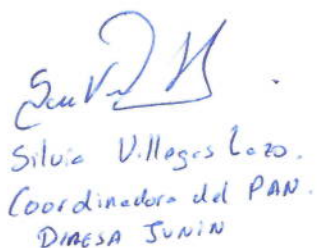 Silvia Villegas Lazo.
Coordinadora del PAN.
DIRESA JUNIN